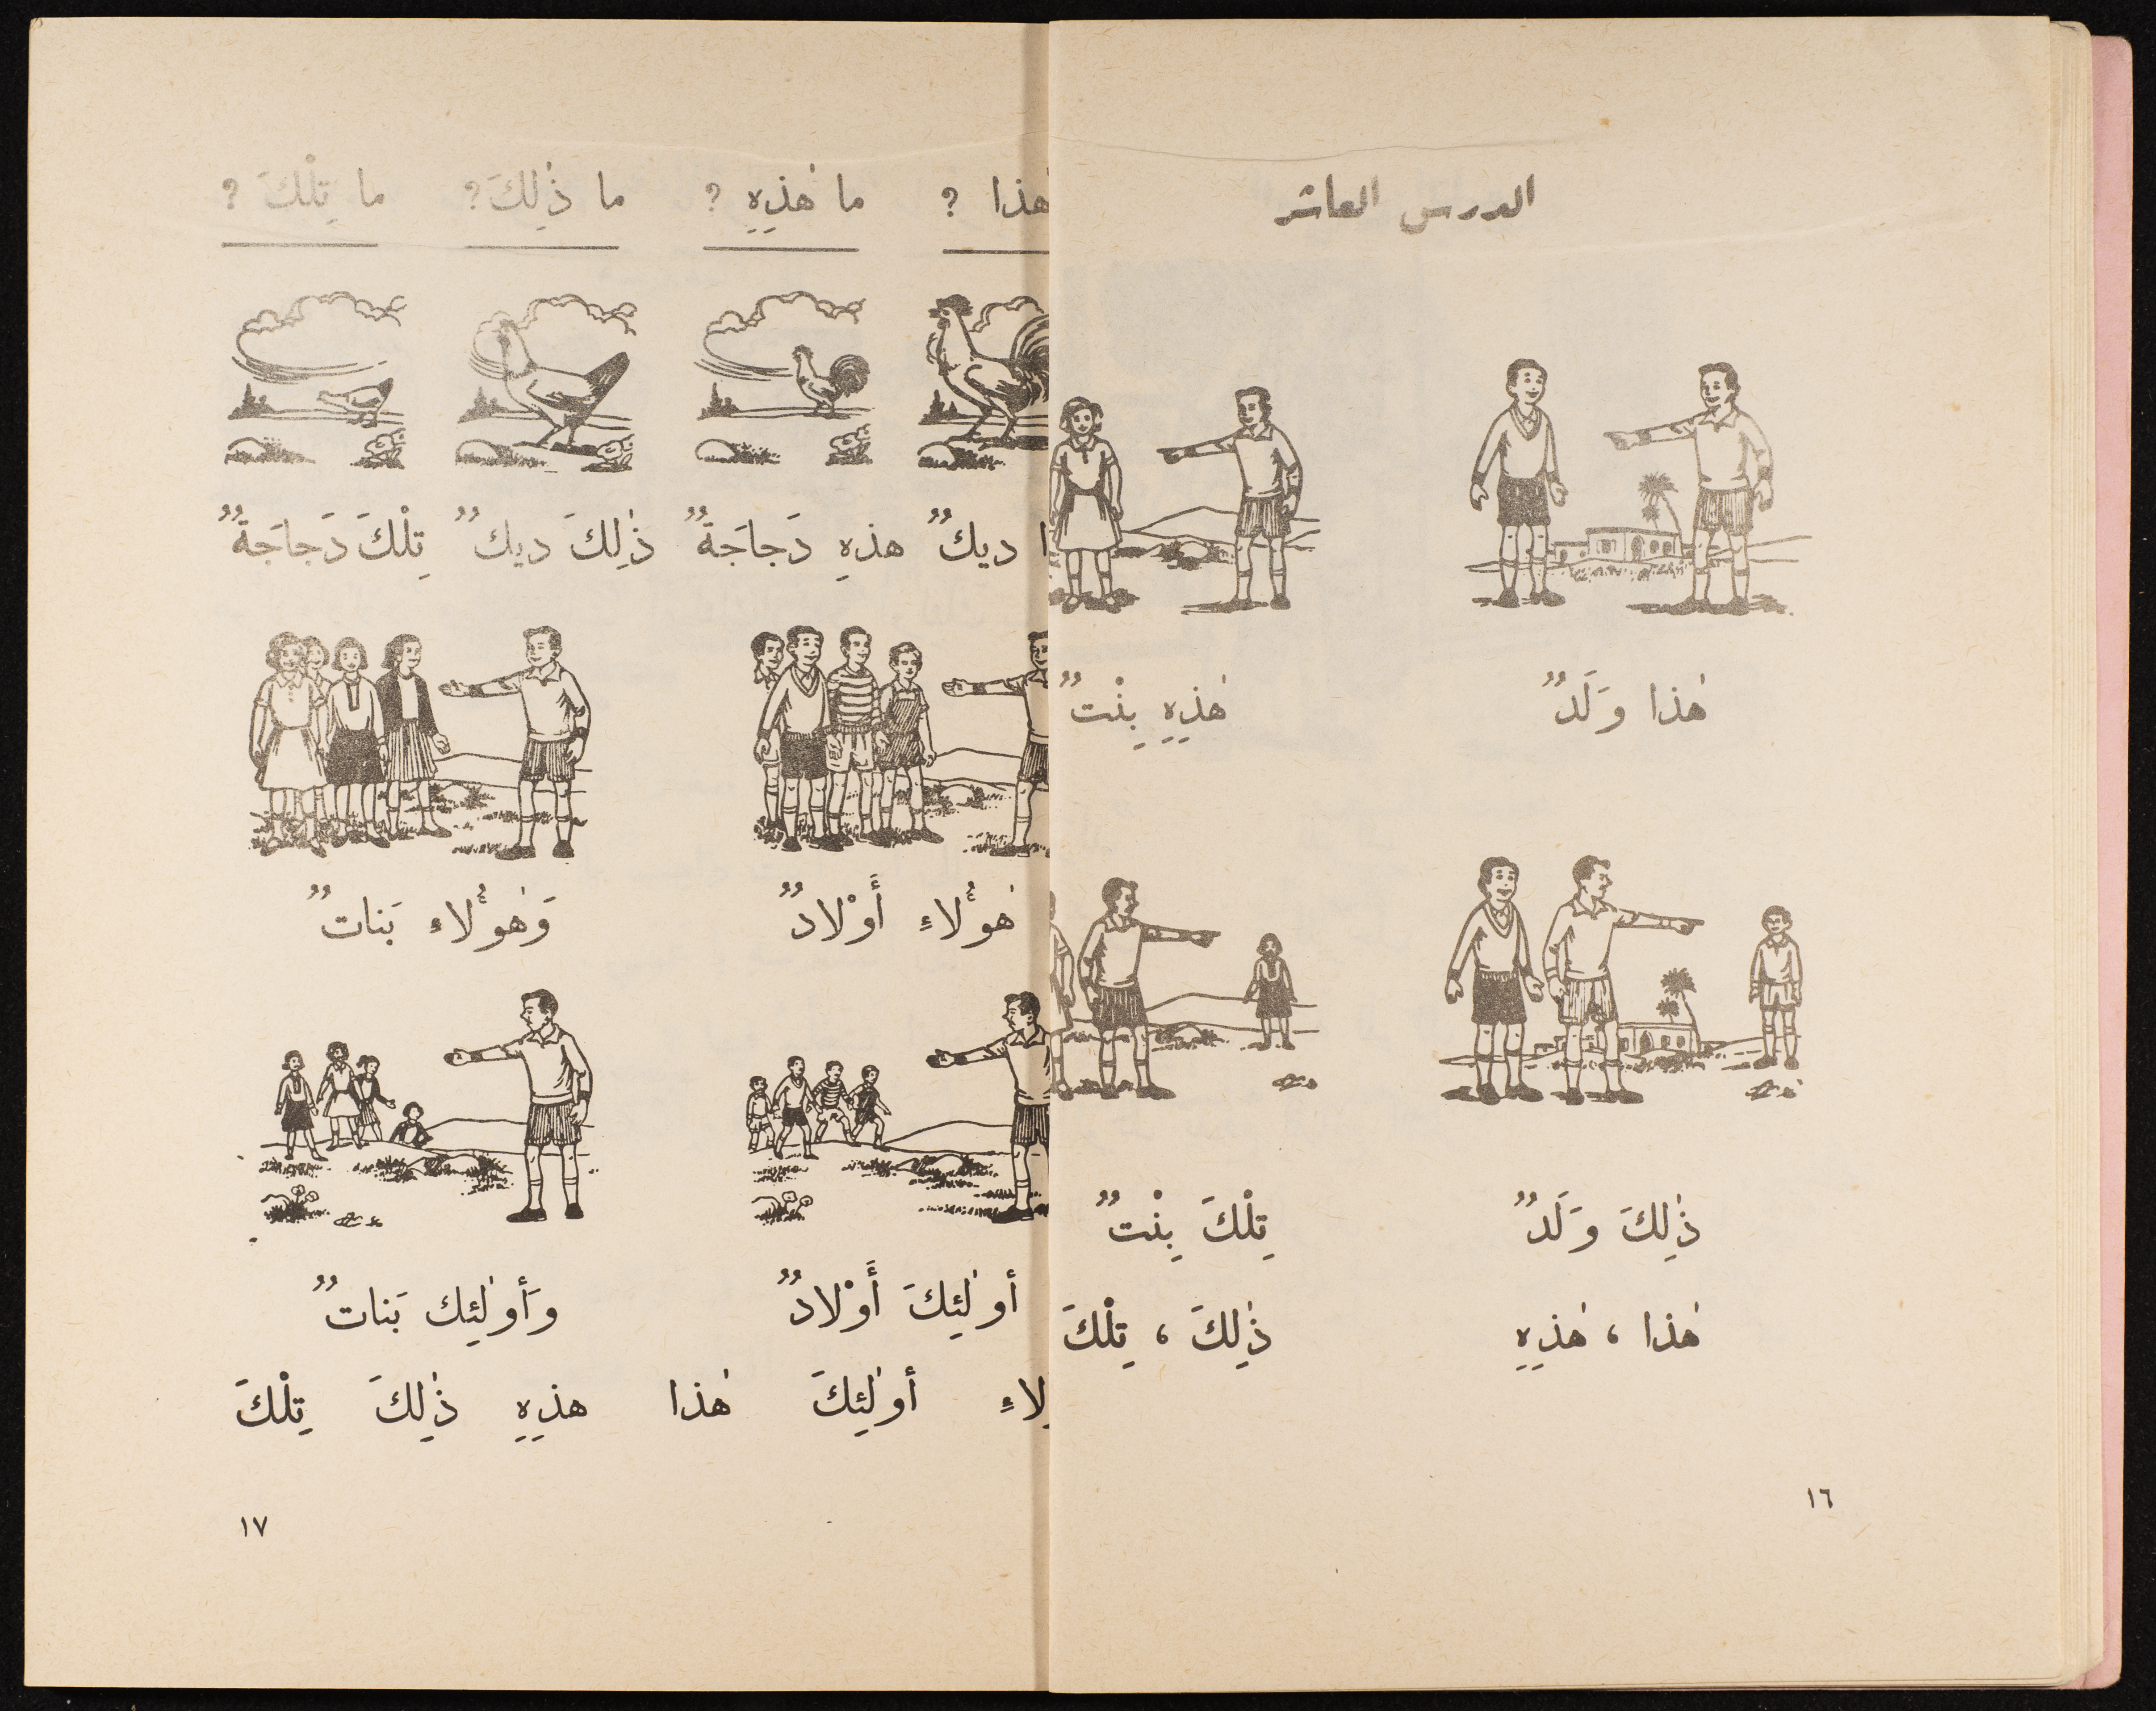 الدرس العاشر
هٰذا وَلَدٌ هٰذِهِ بِنْتٌ
ذٰلِكَ وَلَدٌ تِلْكَ بِنْتٌ
هٰذا ، هٰذِهِ ذٰلِكَ ، تِلْكَ
١٦
هٰذا ? ما هٰذِهِ ? ما ذٰلِكَ ? ما تِلْكَ ?
ديكٌ هذهِ دَجاجَةٌ ذٰلِكَ ديكٌ تِلْكَ دَجاجَةٌ
هٰؤُلاءِ أَوْلادٌ وَهٰؤُلاءِ بَناتٌ
أولٰئِكَ أَوْلادٌ وَأولٰئِك بَناتٌ
أولٰئِكَ هٰذا هذِهِ ذٰلِكَ تِلْكَ
١٧